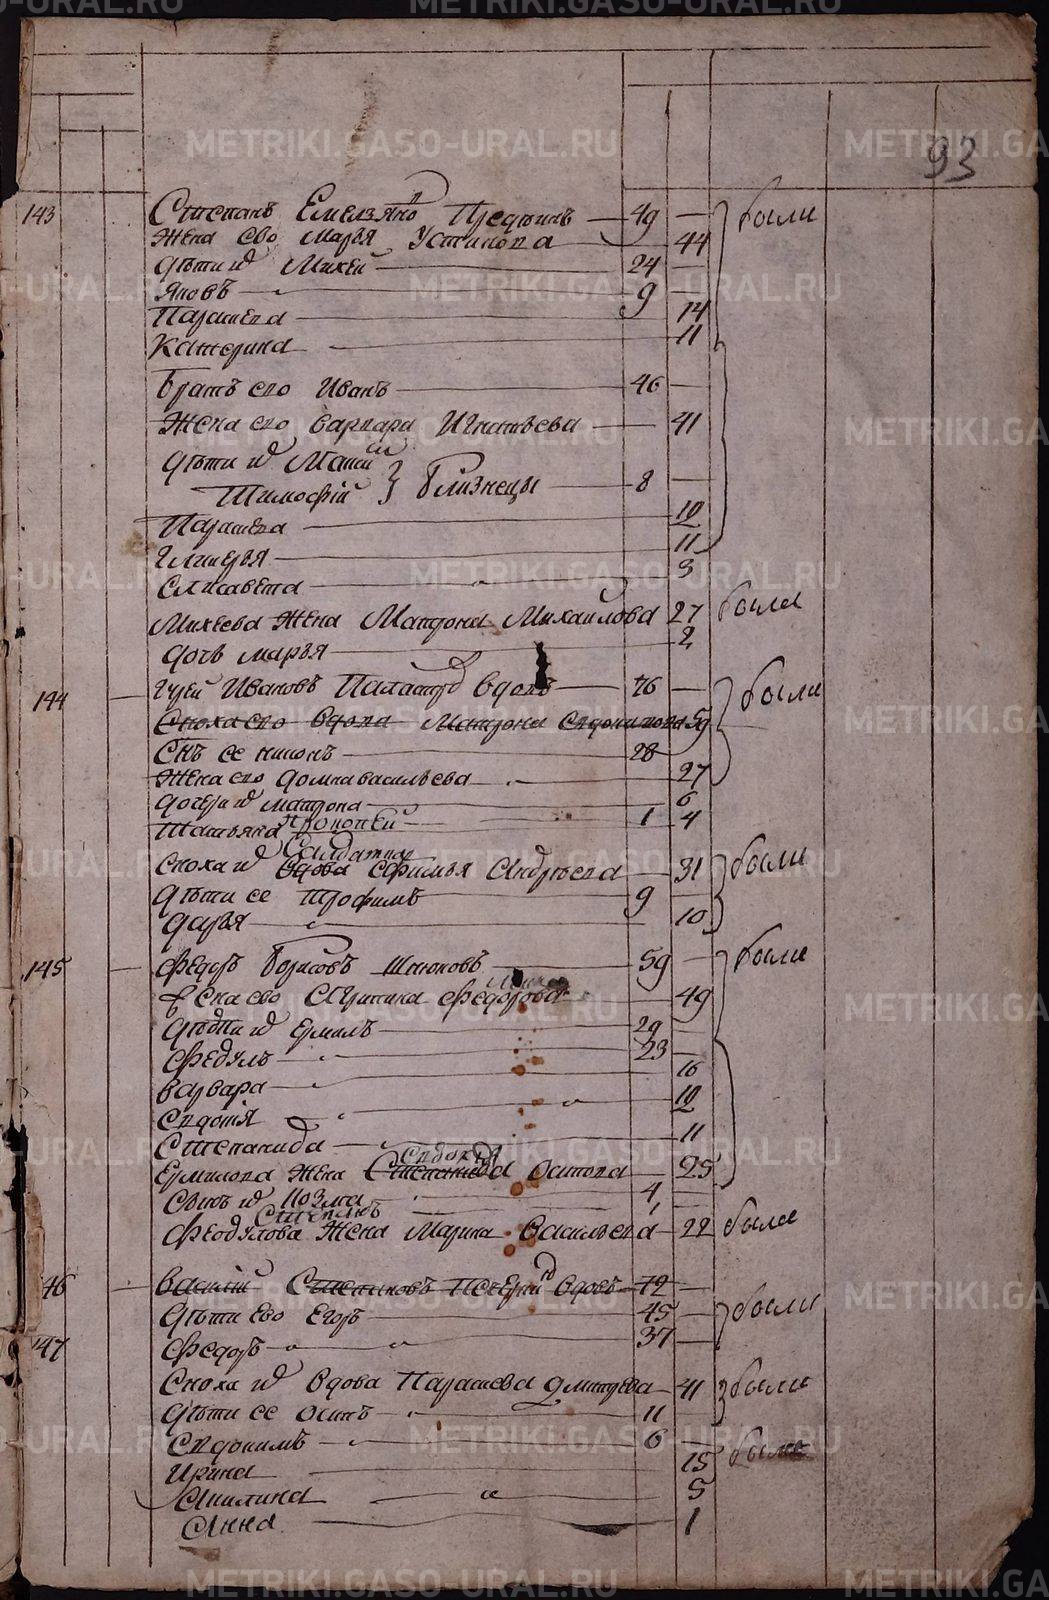 93
143 Степанъ Емелъяно Предеинъ 49 были
Жена ево Маръя Устинова 44
Дѣти ихъ Михей 24
Яковъ 9
Парасева 14
Катерина 11
Братъ ево Иванъ 46
Жена ево варвара Игнатьева 41
Дѣти ихъ
Тимофѣй } Близнецы 8
Парасева 10
Гликеръя 11
Елисавета 3
Михеева жена Матрона Михайлова 27 была
дочь маръя 2
144 Гурей Ивановъ вдовъ 76 были
Сноха ево вдова Матрона Евдокимова 59
Снъ ее никонъ 28
Жена ево домна васильева 27
дочери ихъ матрона 6
Татьяна Прокопей 1 4
Салдатка
Сноха ихъ вдова Ефимъя Андреева 31 были
Дѣти ее трофимъ 9
Даръя 10
145 Федоръ Борисовъ Шнюковъ 59 были
Жена ево Агрипина Федорова 49
Дѣти ихъ Ермилъ 29
Федулъ 23
Варвара 16
Евдотiя 10
Степанида 11
Евдокия
Ермилова жена Степанида Осипова 25
Сынъ ихъ Козма 4
Степанъ 1
Федулова жена Марина Васильева 22 была
46 Василий Степановъ вдовъ 72
Дѣти ево Егоръ 45 были
147 Федоръ 37
Сноха ихъ вдова Парасева Дмитрева 41 были
Дѣти ее осипъ 11
Евдокимъ 6
Ирина 15 были
Акилина 5
Анна 1
METRIKI.GASO-URAL.RU